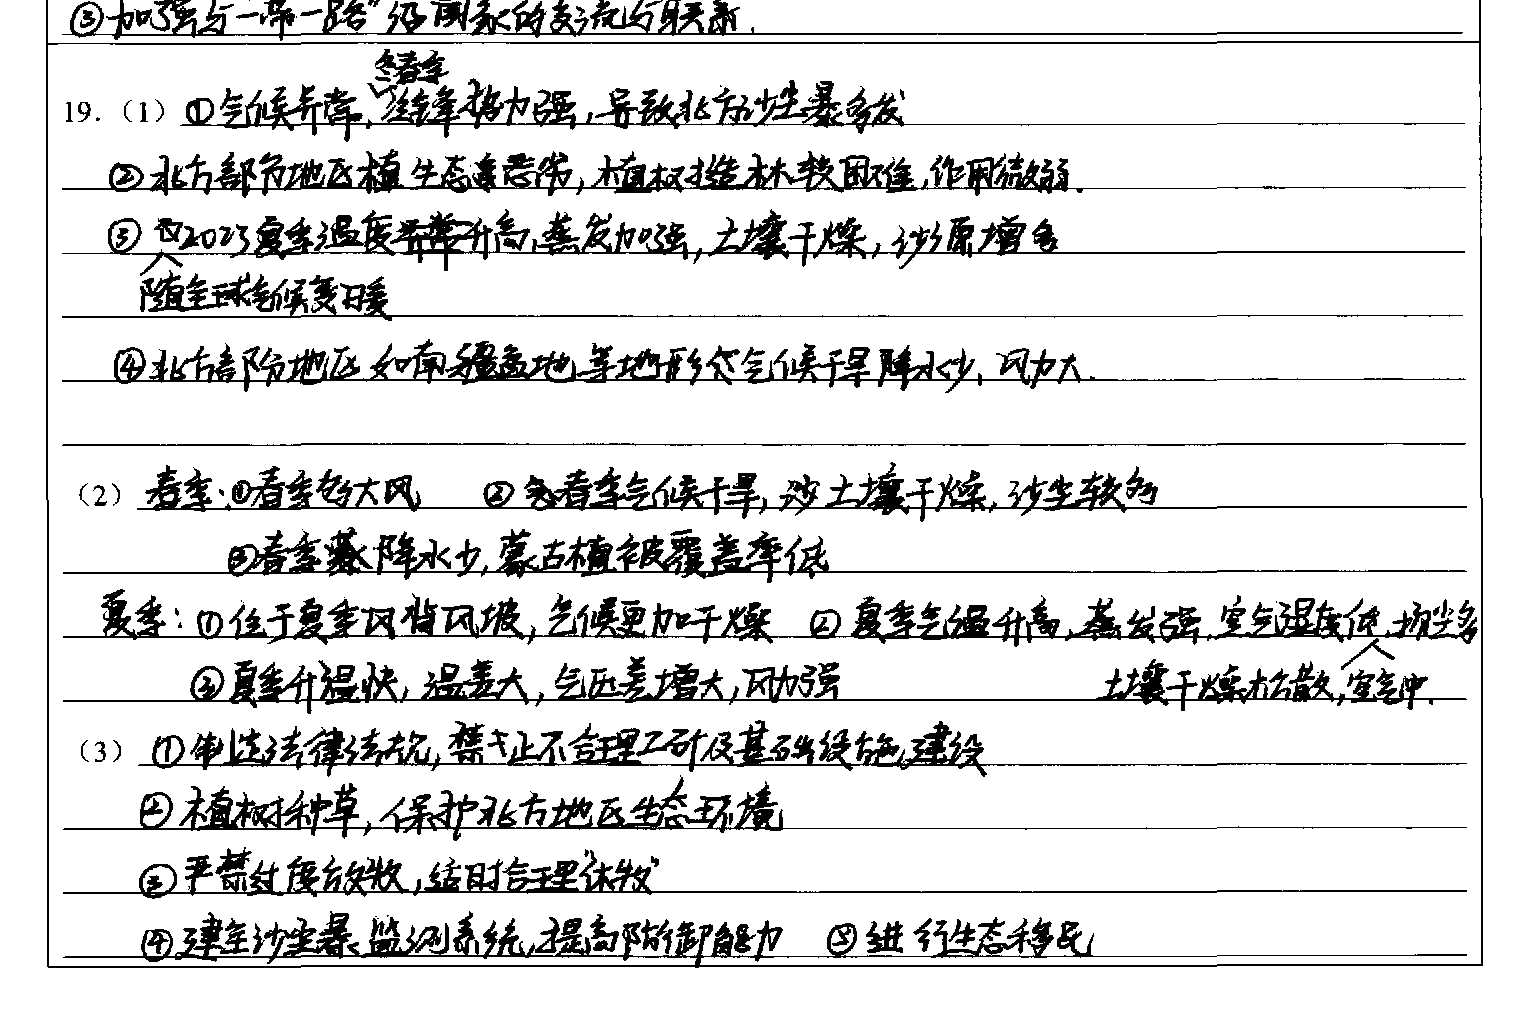 ③加强与“一带一路”沿国家的交流与联系.
冬春季
19.（1）①气候异常,冷锋势力强,导致北方沙尘暴多发
②北方部分地区植生态恶劣,植树造林较困难,作用微弱.
③ 2023夏季温度异常升高,蒸发加强,土壤干燥,沙源增多
随全球气候变暖
④北方部分地区如南疆盆地等地形气候干旱降水少、风力大.
（2）春季:①春季多大风 ②春季气候干旱,沙土壤干燥,沙尘较多
③春季降水少,蒙古植被覆盖率低
夏季:①位于夏季风背风坡,气候更加干燥 ②夏季气温升高,蒸发强,空气湿度低,扬尘多
③夏季升温快,温差大,气压差增大,风力强 土壤干燥松散,空气中.
（3）①制定法律法规,禁止不合理工矿及基础设施建设
②植树种草,保护北方地区生态环境
③严禁过度放牧,适时合理“休牧”
④建全沙尘暴监测系统,提高防御能力 ⑤进行生态移民